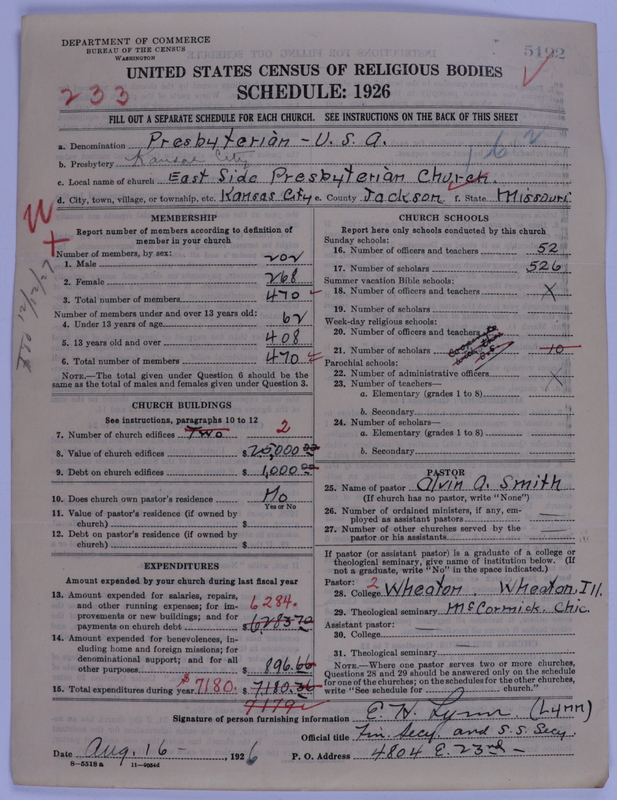 DEPARTMENT OF COMMERCE
BUREAU OF THE CENSUS
WASHINGTON
5192
UNITED STATES CENSUS OF RELIGIOUS BODIES
233
SCHEDULE: 1926
FILL OUT A SEPARATE SCHEDULE FOR EACH CHURCH. SEE INSTRUCTIONS ON THE BACK OF THIS SHEET
a. Denomination Presbyterian - U.S.A.
b. Presbytery Kansas City
c. Local name of church East Side Presbyterian Church.
d. City, town, village, or township, etc. Kansas City e. County Jackson f. State Missouri
MEMBERSHIP
Report number of members according to definition of
member in your church
Number of members, by sex:
1. Male 202
2. Female 268
3. Total number of members 470
Number of members under and over 13 years old:
4. Under 13 years of age 62
5. 13 years old and over 408
6. Total number of members 470
NOTE.—The total given under Question 6 should be
same as the total of males and females given under Question 3.
CHURCH BUILDINGS
See instructions, paragraphs 10 to 12
7. Number of church edifices Two 2
8. Value of church edifices $ 25,000.00
9. Debt on church edifices $ 1,000.00
10. Does church own pastor's residence No
Yes or No
11. Value of pastor's residence (if owned by
church) $
12. Debt on pastor's residence (if owned by
church) $
EXPENDITURES
Amount expended by your church during last fiscal year
13. Amount expended for salaries, repairs,
and other running expenses; for im-
provements or new buildings; and for
payments on church debt 6284. $ 6283.70
14. Amount expended for benevolences, in-
cluding home and foreign missions; for
denominational support; and for all
other purposes $ 896.66
15. Total expenditures during year $7180. $ 7180.36
7179
CHURCH SCHOOLS
Report here only schools conducted by this church
Sunday schools:
16. Number of officers and teachers 52
17. Number of scholars 526
Summer vacation Bible schools:
18. Number of officers and teachers X
19. Number of scholars
Week-day religious schools:
20. Number of officers and teachers
21. Number of scholars 10
Parochial schools:
22. Number of administrative officers X
23. Number of teachers—
a. Elementary (grades 1 to 8)
b. Secondary
24. Number of scholars—
a. Elementary (grades 1 to 8)
b. Secondary
PASTOR
25. Name of pastor Alvin A. Smith
(If church has no pastor, write "None")
26. Number of ordained ministers, if any, em-
ployed as assistant pastors
27. Number of other churches served by the
pastor or his assistants
If pastor (or assistant pastor) is a graduate of a college or
theological seminary, give name of institution below. (If
not a graduate, write "No" in the space indicated.)
Pastor: 2
28. College Wheaton, Wheaton, Ill.
29. Theological seminary McCormick, Chic.
Assistant pastor:
30. College
31. Theological seminary
NOTE.—Where one pastor serves two or more churches,
Questions 28 and 29 should be answered only on the schedule
for one of the churches; on the schedules for the other churches,
write "See schedule for church."
Signature of person furnishing information E. H. Lynn (Lynn)
Official title Fin. Secy. and S.S. Secy.
Date Aug. 16 - 1926
P. O. Address 4804 E. 23rd -
8-5518a 11-9054d